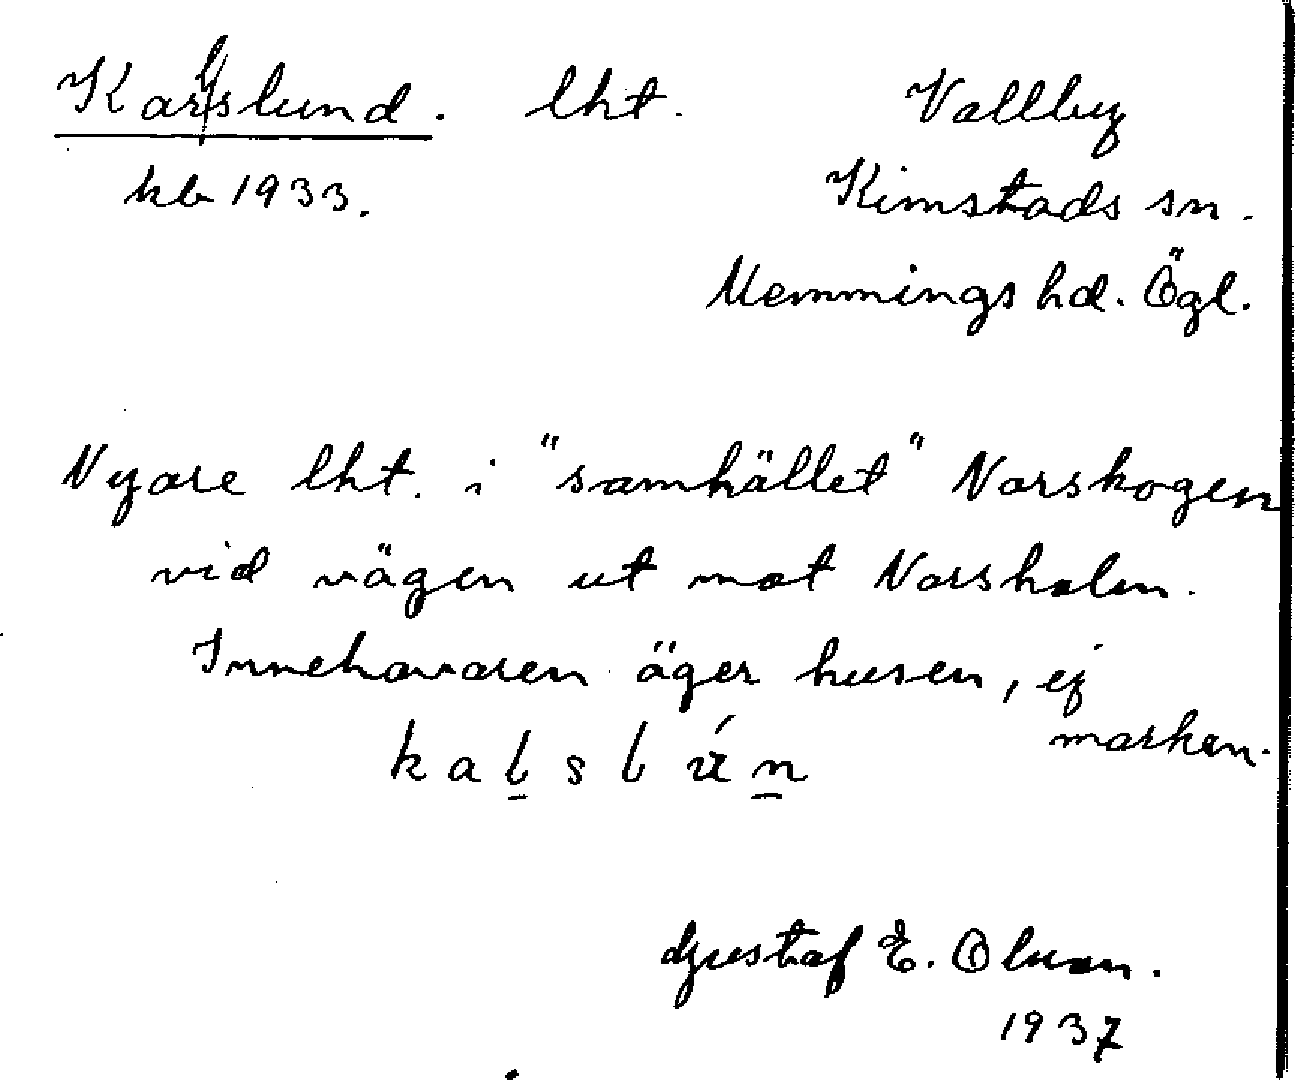 Karlslund. lht. Vallby
kb 1933. Kimstads sn.
Memmings hd. Ögl.
Nyare lht. i "samhället" Norskogen
vid vägen ut mot Norsholm.
Innehavaren äger husen, ej
marken.
Gustaf E. Olson.
1937